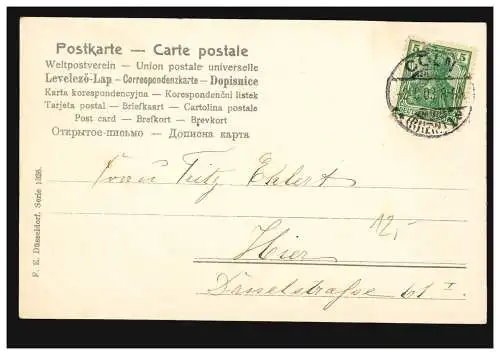 Postkarte — Carte postale
Weltpostverein — Union postale universelle
Levelező-Lap — Correspondenzkarte — Dopisnice
Karta korespondencyjna — Korespondenční listek
Tarjeta postal — Briefkaart — Cartolina postale
Post card — Brefkort — Brevkort
Открытое-письмо — Дописна карта
5 5
CÖLN
(RHEIN)
Fritz Ehlert
12,-
Hier
Düsselstrasse 61 I
F. E. Düsseldorf. Serie 1028.